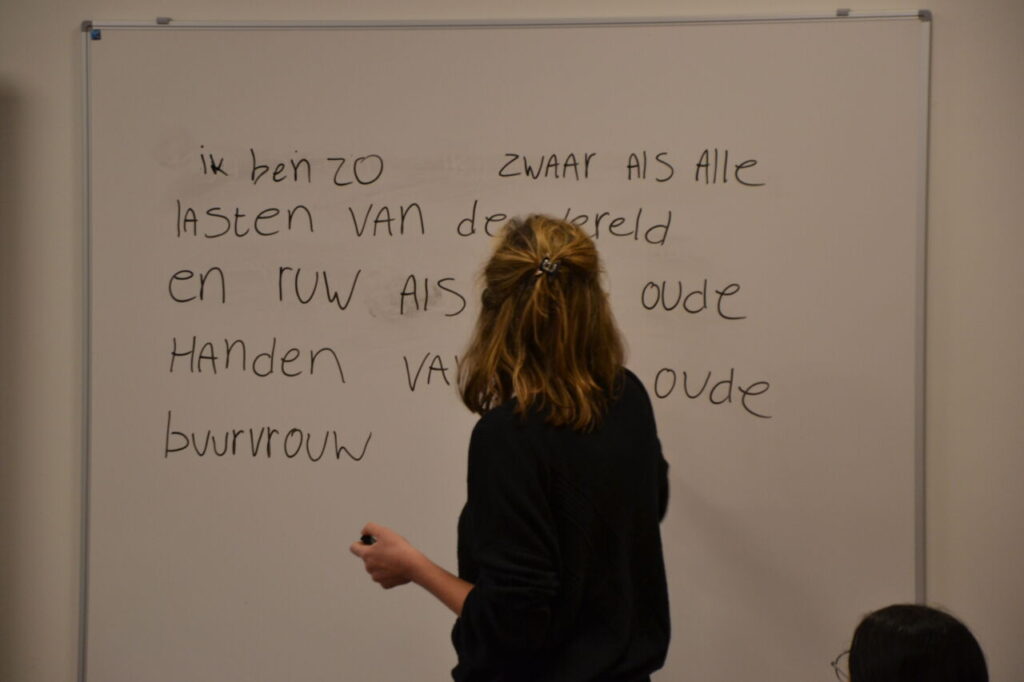 ik ben zo zwaar als alle
lasten van de wereld
en ruw als oude
Handen van oude
buurvrouw